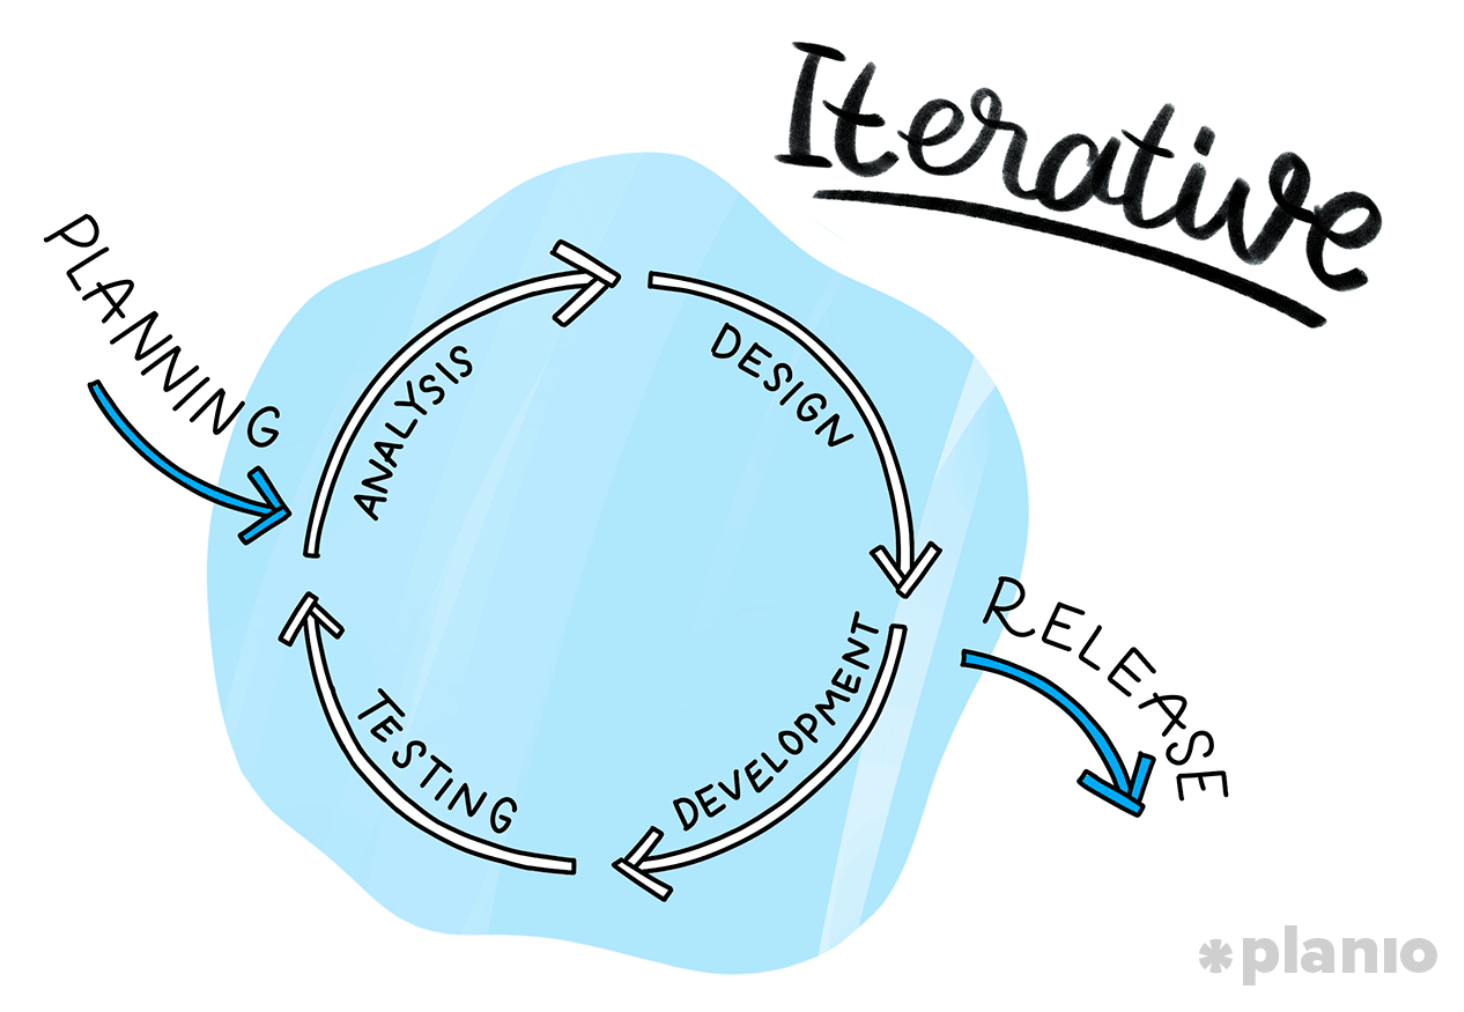 Iterative
PLANNING
ANALYSIS
DESIGN
DEVELOPMENT
TESTING
RELEASE
*planio